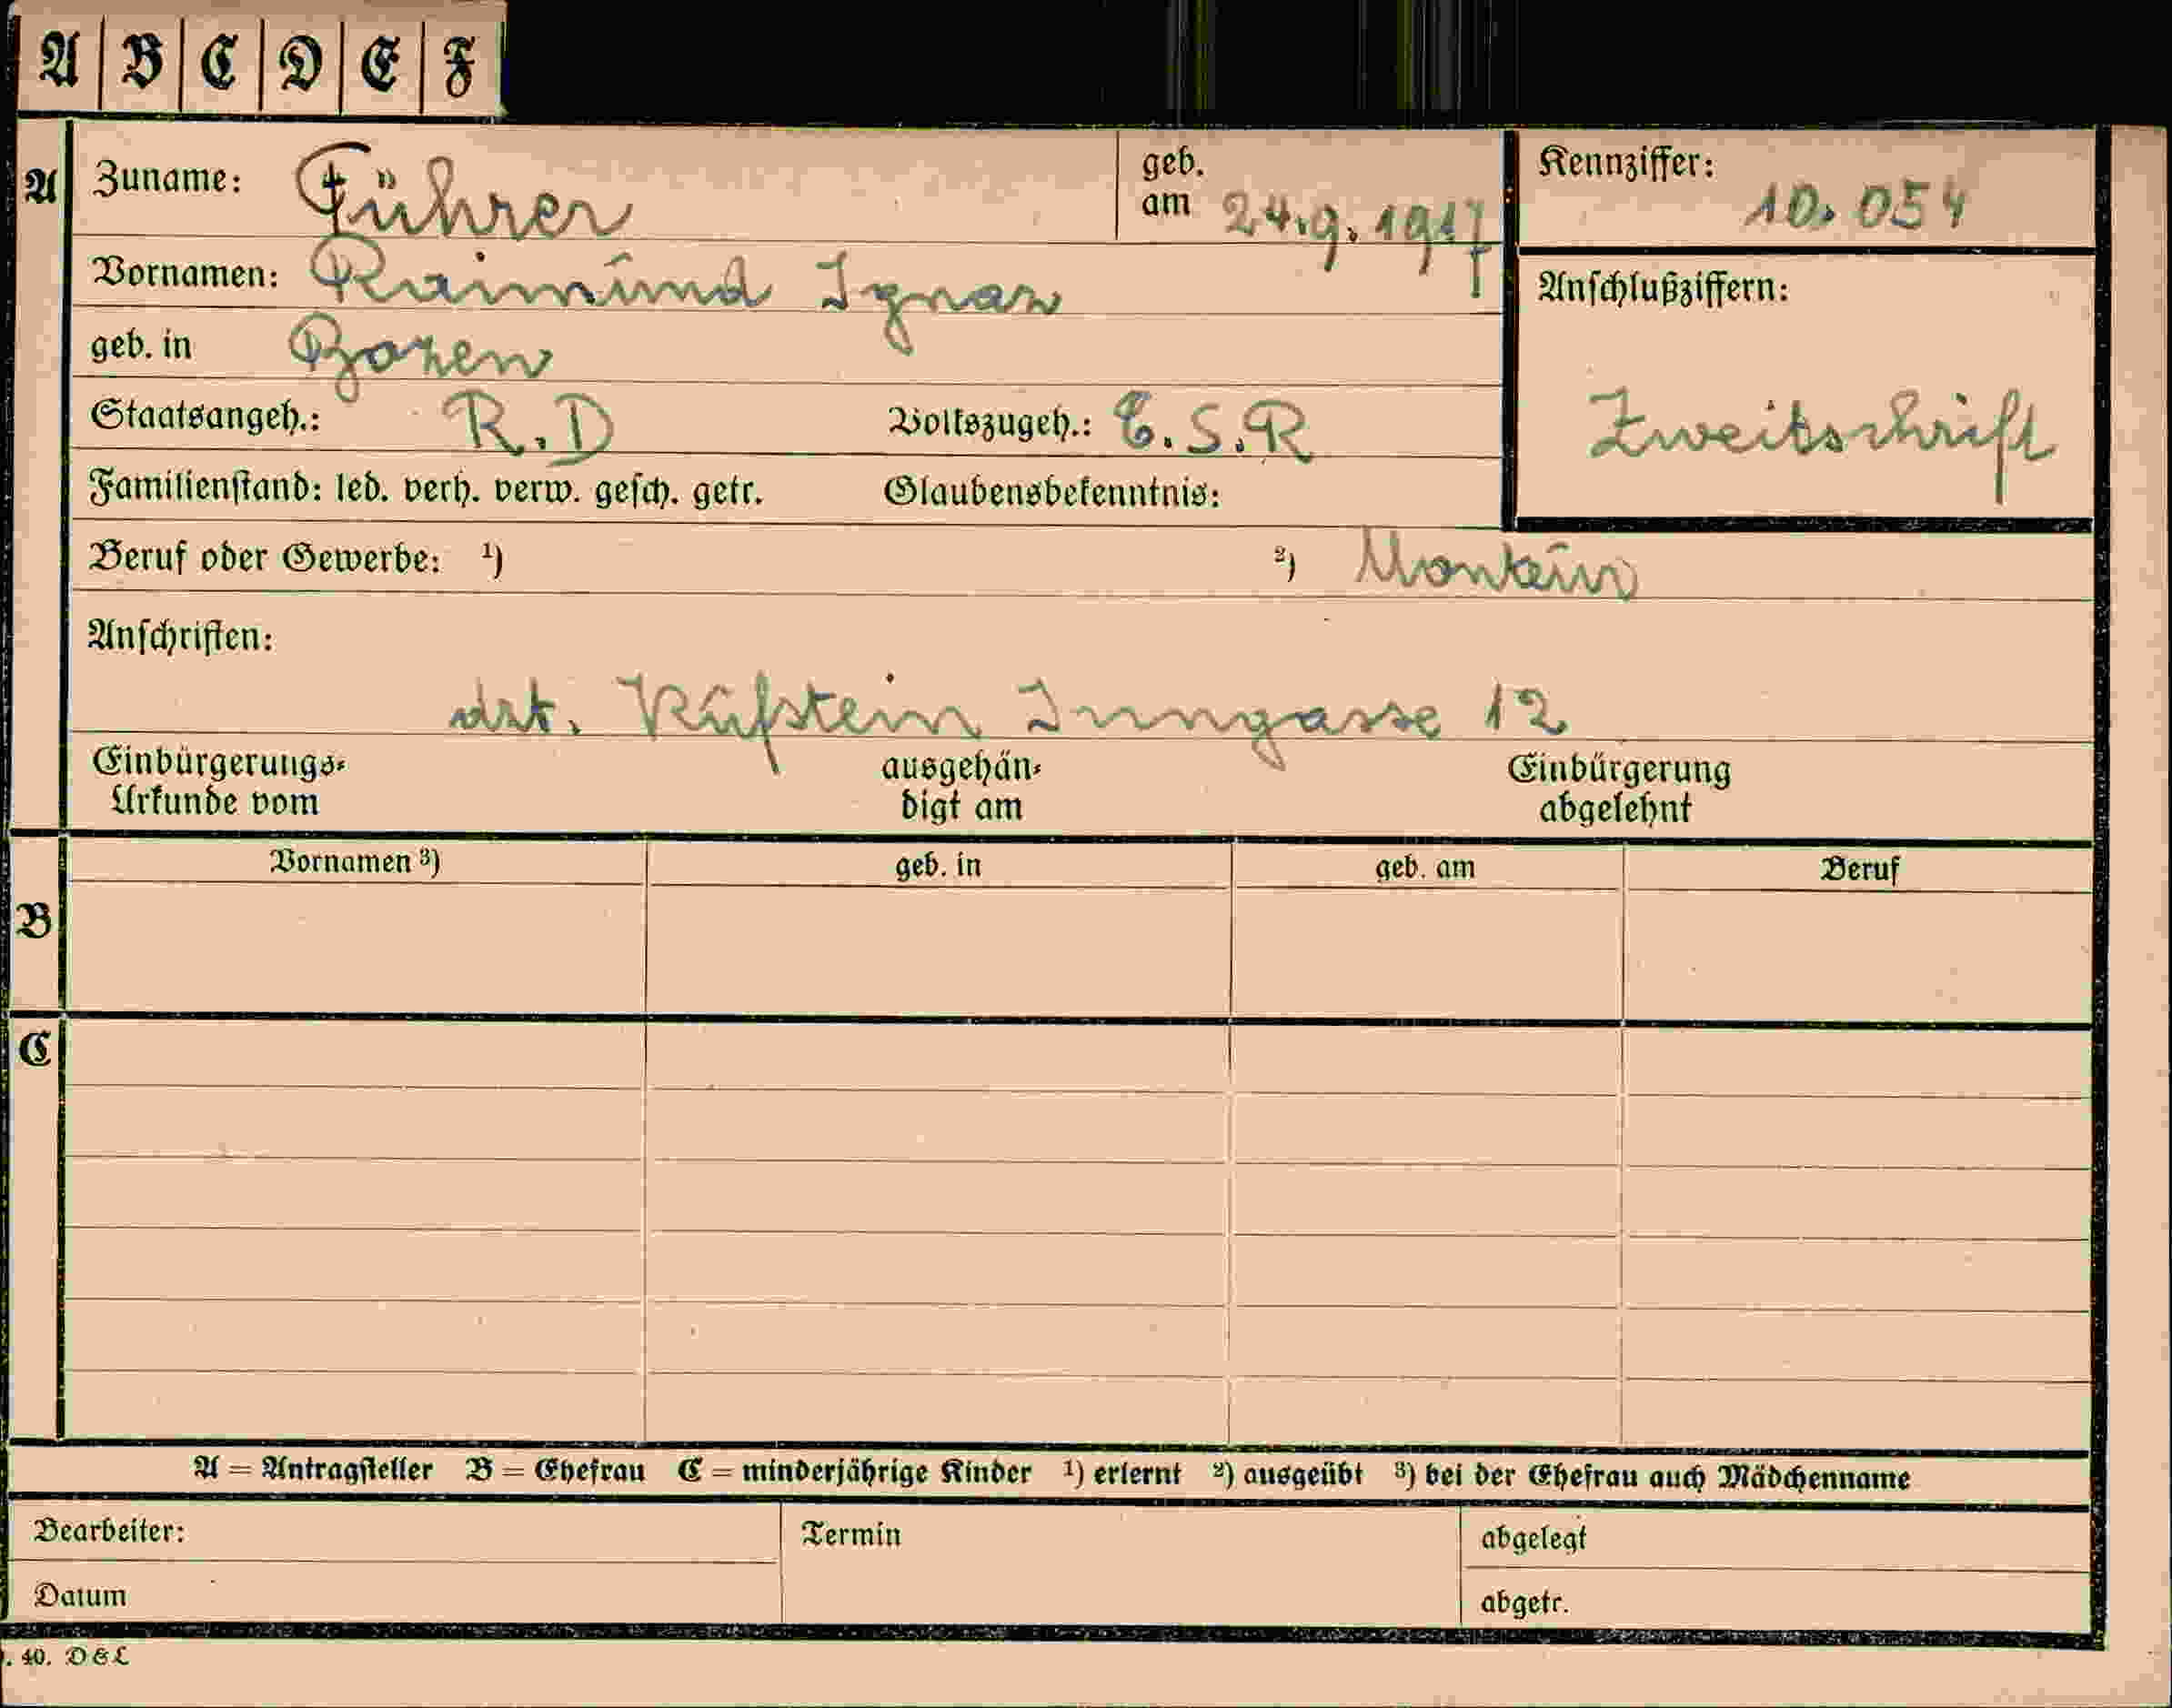 A B C D E F
A Zuname: Führer geb. am 24.9.1917 Kennziffer: 10.054
Vornamen: Raimund Ignaz
geb. in Bozen
Anschlußziffern:
Zweitschrift
Staatsangeh.: R.D Volkszugeh.: E.S.R
Familienstand: led. verh. verw. gesch. getr. Glaubensbekenntnis:
Beruf oder Gewerbe: 1) 2) Monteur
Anschriften:
dzt. Kufstein Inngasse 12
Einbürgerungs- ausgehän- Einbürgerung
Urkunde vom digt am abgelehnt
Vornamen 3) geb. in geb. am Beruf
B
C
A = Antragsteller B = Ehefrau C = minderjährige Kinder 1) erlernt 2) ausgeübt 3) bei der Ehefrau auch Mädchenname
Bearbeiter: Termin abgelegt
Datum abgetr.
. 40. D & L